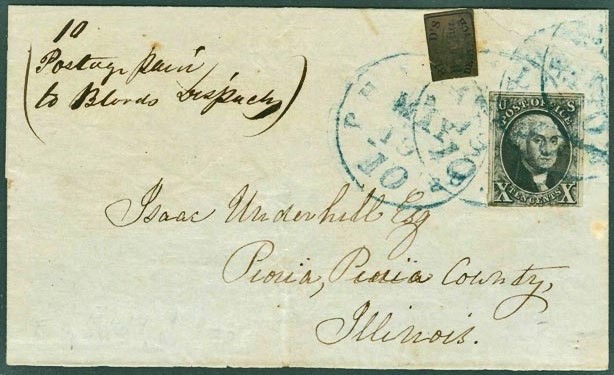 10
Postage paid
to Blords Dispach
D'S
U S
POST OFFICE
X TEN CENTS X
PH
MAR
10
Isaac Underhill Esq
Peoria, Peoria County,
Illinois.